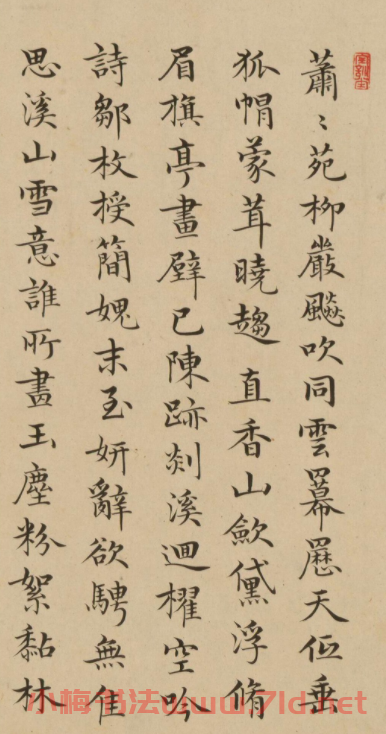 蕭〻苑柳嚴飈吹同雲羃䍥天低垂
狐帽蒙茸曉趨直香山歛黛浮脩
眉旗亭畫壁已陳跡剡溪迴櫂空吟
詩鄒枚授簡媿末至妍辭欲騁無佳
思溪山雪意誰所畫玉塵粉絮黏林
小梅书法www.7ld.net